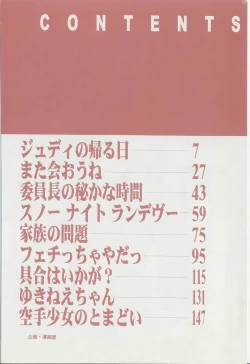 CONTENTS
ジュディの帰る日 7
また会おうね 27
委員長の秘かな時間 43
スノー ナイト ランデヴー 59
家族の問題 75
フェチっちゃやだっ 95
具合はいかが? 115
ゆきねえちゃん 131
空手少女のとまどい 147